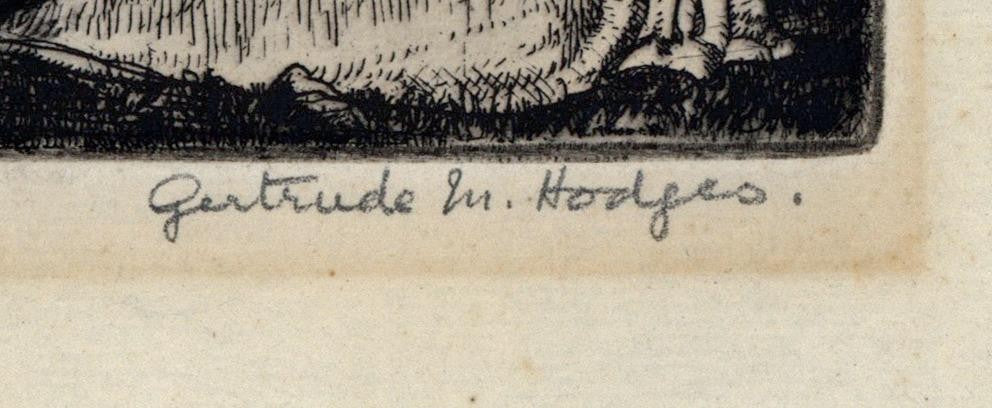 Gertrude M. Hodges.